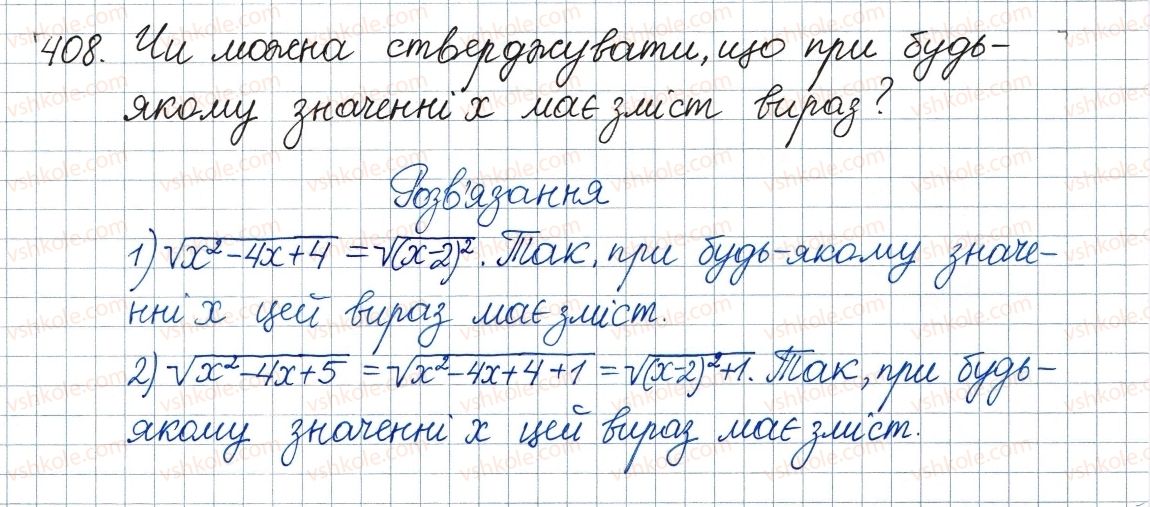 408. Чи можна стверджувати, що при будь-
якому значенні x має зміст вираз?
Розв'язання
1) √(x²-4x+4) = √(x-2)². Так, при будь-якому значе-
нні x цей вираз має зміст.
2) √(x²-4x+5) = √(x²-4x+4+1) = √((x-2)²+1). Так, при будь-
якому значенні x цей вираз має зміст.